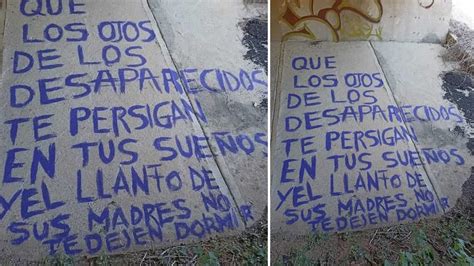 QUE
LOS OJOS
DE LOS
DESAPARECIDOS
TE PERSIGAN
EN TUS SUEÑOS
Y EL LLANTO DE
SUS MADRES NO
TE DEJEN DORMIR
QUE
LOS OJOS
DE LOS
DESAPARECIDOS
TE PERSIGAN
EN TUS SUEÑOS
Y EL LLANTO DE
SUS MADRES NO
TE DEJEN DORMIR